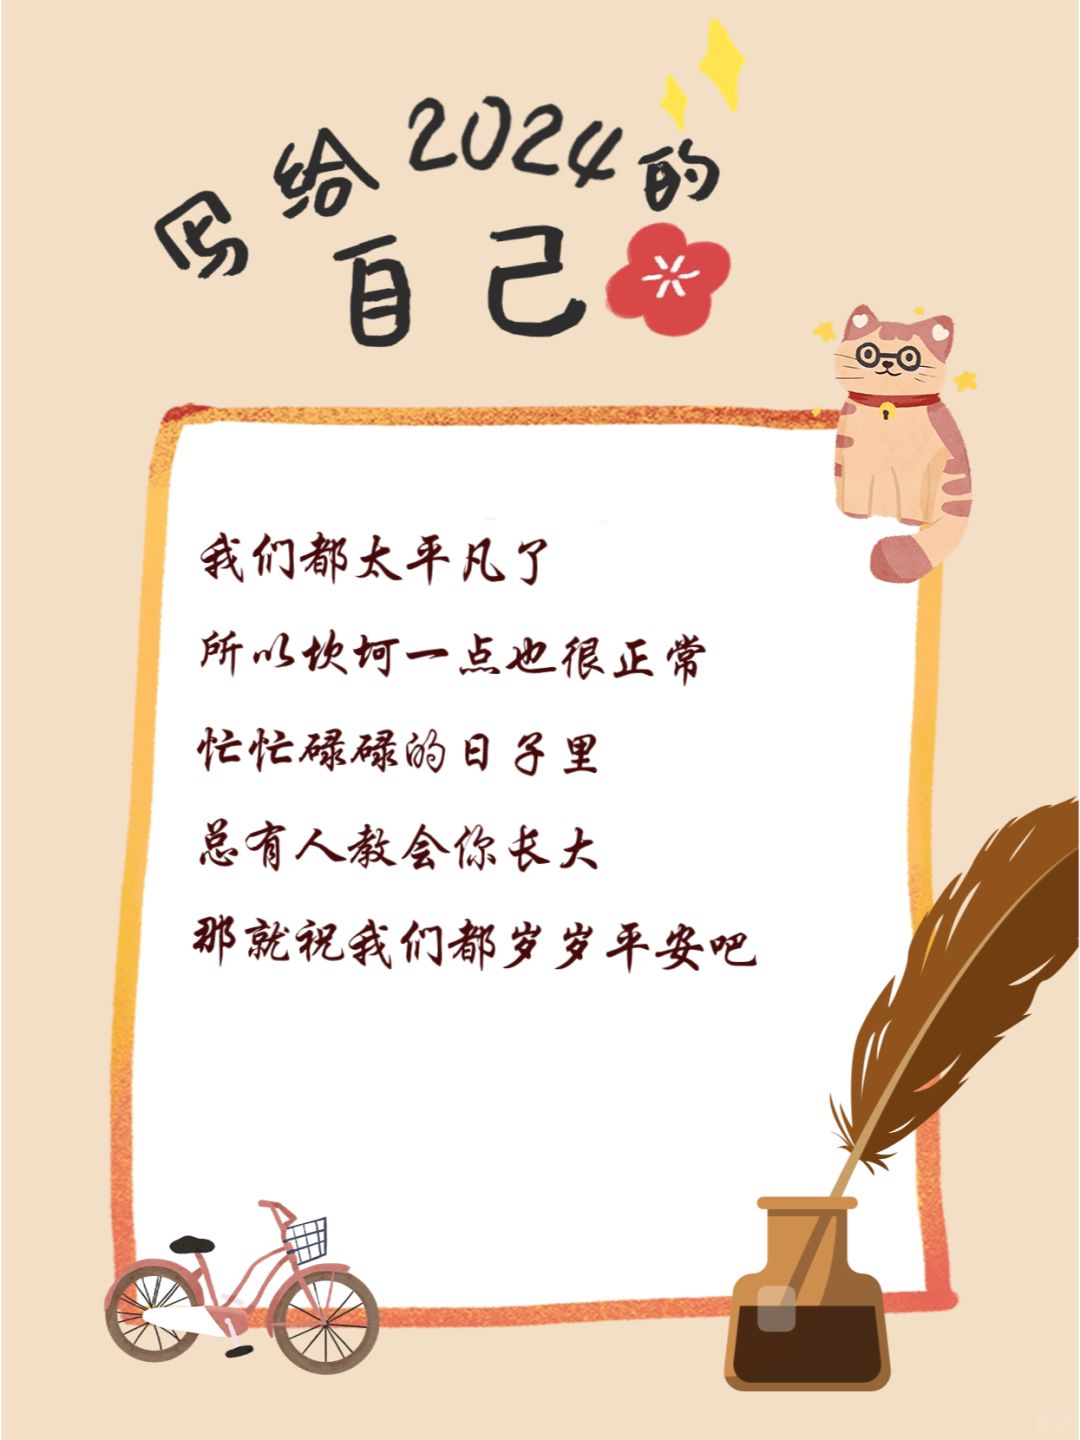 写给2024的
自己
我们都太平凡了
所以坎坷一点也很正常
忙忙碌碌的日子里
总有人教会你长大
那就祝我们都岁岁平安吧